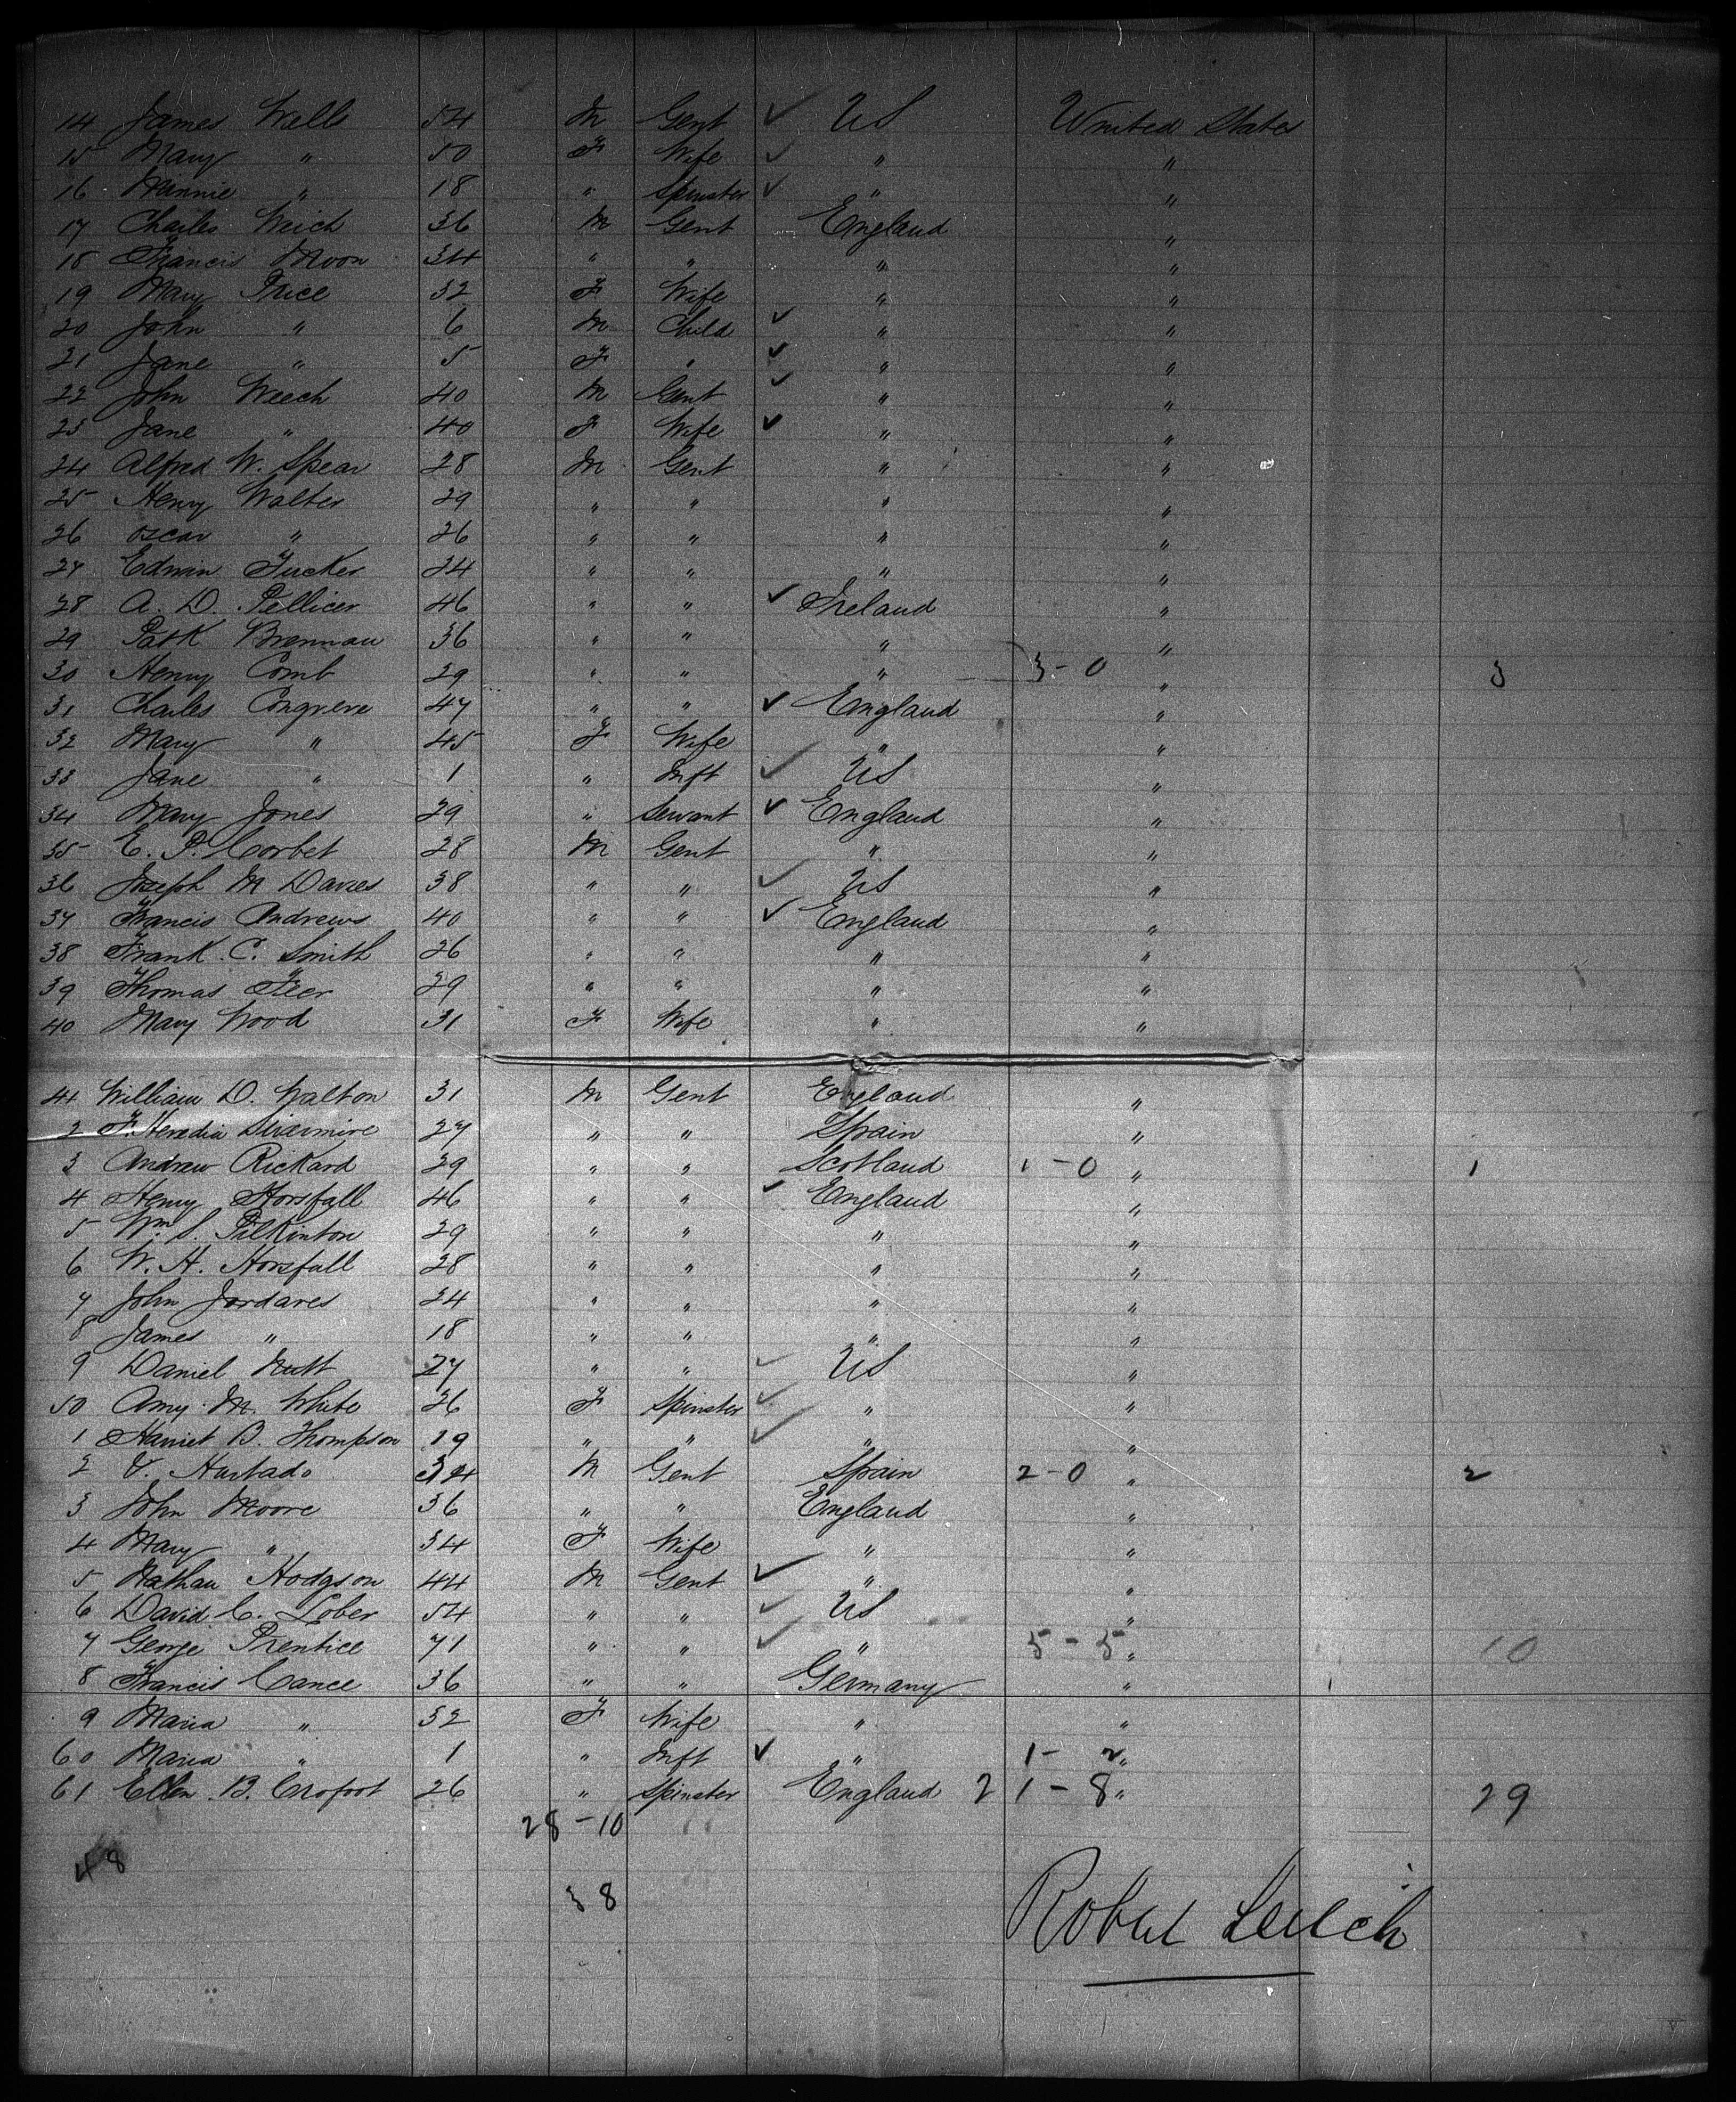 14 James Wells 54 M Gent ✓ US United States
15 Mary " 50 F Wife ✓ " "
16 Minnie " 18 " Spinster ✓ " "
17 Charles Weich 36 M Gent England "
18 Francis Moon 34 " " " "
19 Mary Price 32 F Wife " "
20 John " 6 M Child ✓ " "
21 Jane " 5 F " ✓ " "
22 John Weech 40 M Gent ✓ " "
23 Jane " 40 F Wife ✓ " "
24 Alfred W. Spear 28 M Gent " "
25 Henry Walter 29 " " " "
26 Oscar " 26 " " " "
27 Edwin Tucker 24 " " " "
28 A. D. Pellicer 46 " " ✓ Ireland "
29 Patk Brennan 36 " " " "
30 Henry Comb 29 " " " 3-0 " 3
31 Charles Congreve 47 " " ✓ England "
32 Mary " 45 F Wife " "
33 Jane " 1 " Inft ✓ US "
34 Mary Jones 29 " Servant ✓ England "
35 E. P. Corbet 28 M Gent " "
36 Joseph M Davies 38 " " ✓ US "
37 Francis Andrews 40 " " ✓ England "
38 Frank C. Smith 26 " " " "
39 Thomas Feer 29 " " " "
40 Mary Wood 31 F Wife " "
41 William D. Walton 31 M Gent England "
2 F. Heredia 27 " " Spain "
3 Andrew Rickard 29 " " Scotland 1-0 " 1
4 Henry Horsfall 46 " " ✓ England "
5 Wm S. Pilkinton 29 " " " "
6 W. H. Horsfall 28 " " " "
7 John Jordares 24 " " " "
8 James " 18 " " " "
9 Daniel Nutt 27 " " ✓ US "
50 Amy M. White 26 F Spinster ✓ " "
1 Harriet B. Thompson 19 " " ✓ " "
2 V. Hurtado 34 M Gent Spain 2-0 " 2
3 John Moore 36 " " England "
4 Mary " 34 F Wife " "
5 Nathan Hodgson 44 M Gent ✓ " "
6 David C. Lober 54 " " ✓ US "
7 George Prentice 71 " " ✓ " 5-5 " 10
8 Francis Cance 36 " " Germany "
9 Maria " 32 F Wife " "
60 Maria " 1 " Inft ✓ " 1-2 "
61 Ellen B. Crofoot 26 " Spinster England 2 1-8 " 29
28-10
48
38
Robert Leech